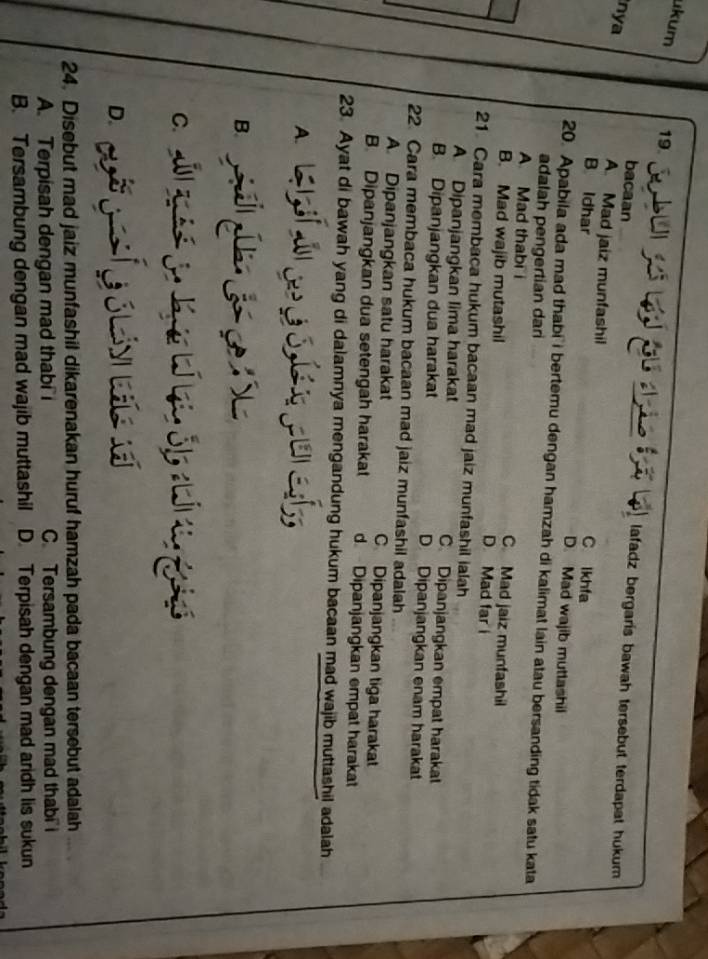 ukum
nya
19. إِنَّهَا بَقَرَةٌ صَفْرَاءُ فَاقِعٌ لَوْنُهَا تَسُرُّ النَّاظِرِيْنَ lafadz bergaris bawah tersebut terdapat hukum
bacaan ....
A. Mad jaiz munfashil C. Ikhfa
B. Idhar D. Mad wajib muttashil
20. Apabila ada mad thabi'i bertemu dengan hamzah di kalimat lain atau bersanding tidak satu kata
adalah pengertian dari ....
A. Mad thabi'i C. Mad jaiz munfashil
B. Mad wajib mutashil D. Mad far'i
21. Cara membaca hukum bacaan mad jaiz munfashil ialah ....
A. Dipanjangkan lima harakat C. Dipanjangkan empat harakat
B. Dipanjangkan dua harakat D. Dipanjangkan enam harakat
22. Cara membaca hukum bacaan mad jaiz munfashil adalah ....
A. Dipanjangkan satu harakat C. Dipanjangkan tiga harakat
B. Dipanjangkan dua setengah harakat d. Dipanjangkan empat harakat
23. Ayat di bawah yang di dalamnya mengandung hukum bacaan mad wajib muttashil adalah ....
A. وَرَأَيْتَ النَّاسَ يَدْخُلُوْنَ فِيْ دِيْنِ اللّٰهِ أَفْوَاجًا
B. سَلَامٌ هِيَ حَتَّى مَطْلَعِ الْفَجْرِ
C. فَيَخْرُجُ مِنْهُ الْمَاءُ وَإِنَّ مِنْهَا لَمَا يَهْبِطُ مِنْ خَشْيَةِ اللّٰهِ
D. لَقَدْ خَلَقْنَا الْإِنْسَانَ فِيْ أَحْسَنِ تَقْوِيْمٍ
24. Disebut mad jaiz munfashil dikarenakan huruf hamzah pada bacaan tersebut adalah ....
A. Terpisah dengan mad thabi'i C. Tersambung dengan mad thabi'i
B. Tersambung dengan mad wajib muttashil D. Terpisah dengan mad aridh lis sukun